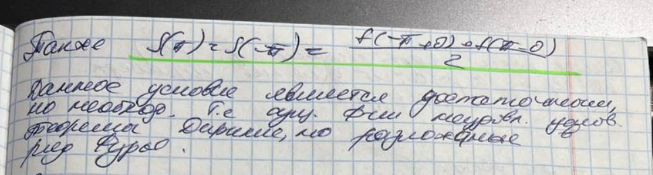 Также S(π) = S(-π) = f(-π+0)+f(π-0) / 2
Данное условие является достаточным,
но необход. т.е сущ. ф-ии неудовл. услов.
теоремы Дирихле, но разложеные
ряд Фурье.